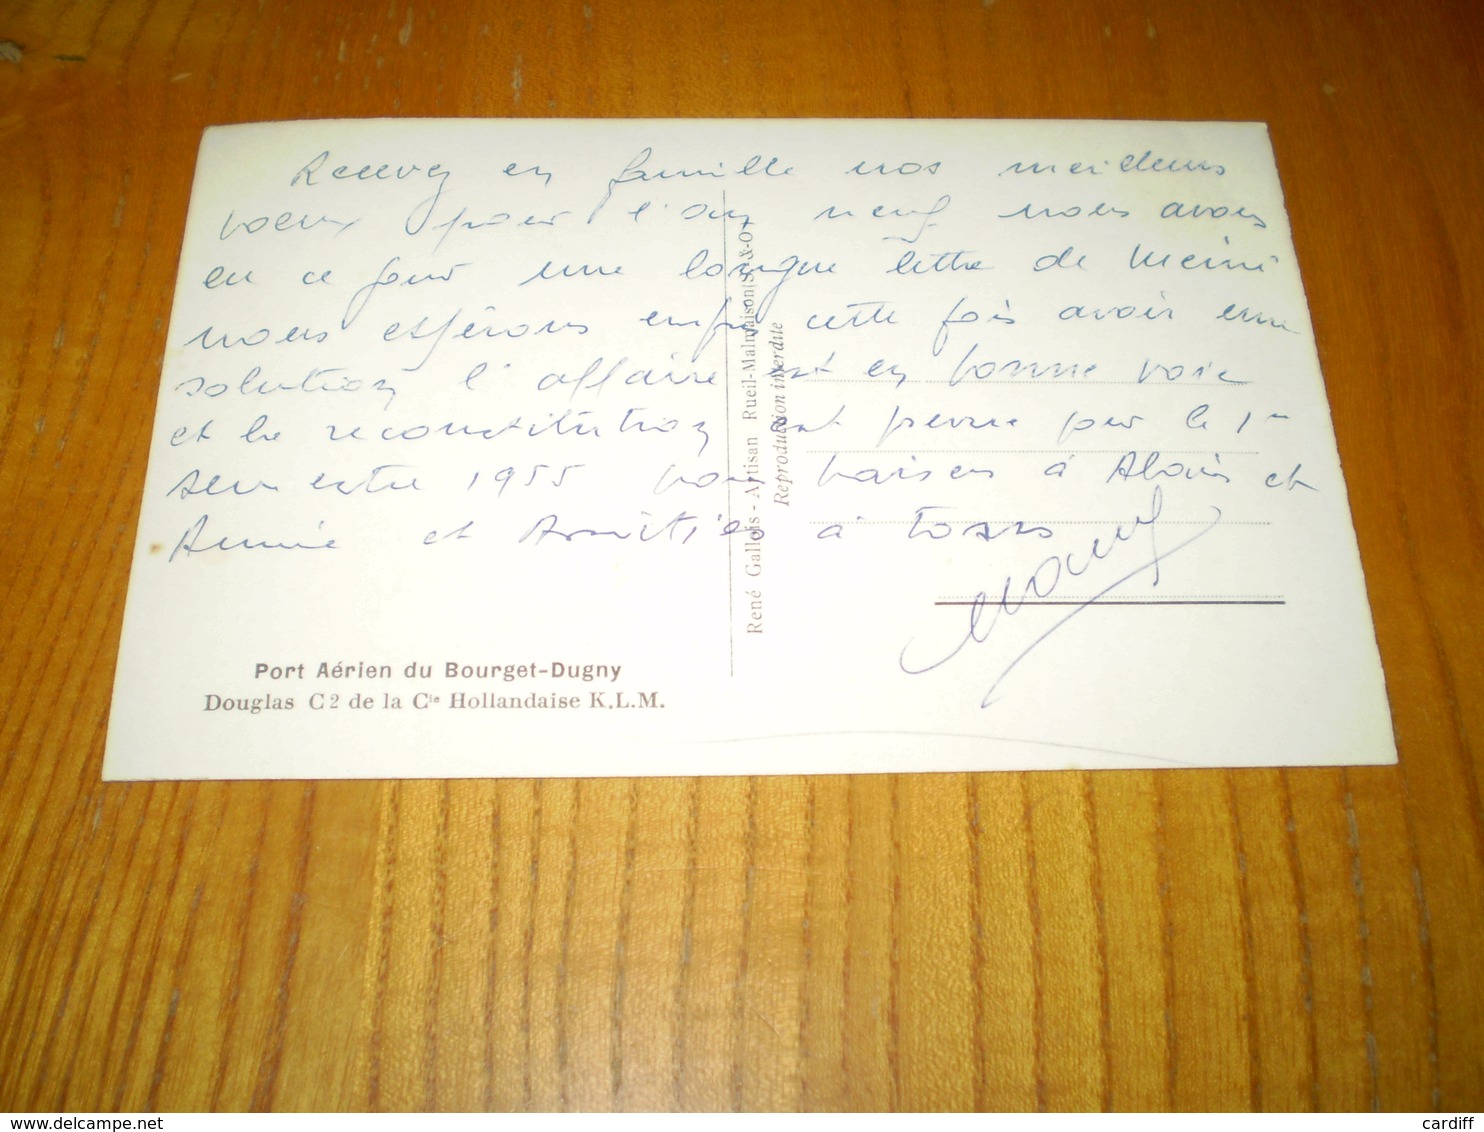 Recevez en famille nos meilleurs
voeux pour l'an neuf nous avons
eu ce jour une longue lettre de
nous espérons enfin cette fois avoir une
solution l'affaire est en bonne voie
et la reconstitution est prévue pour le 1er
semestre 1955 bons baisers à Alain et
Annie et Amitiés à tous
Port Aérien du Bourget-Dugny
Douglas C2 de la Cie Hollandaise K.L.M.
René Gallois - Artisan Rueil-Malmaison (S.&-O.)
Reproduction interdite
delcampe.net
cardiff